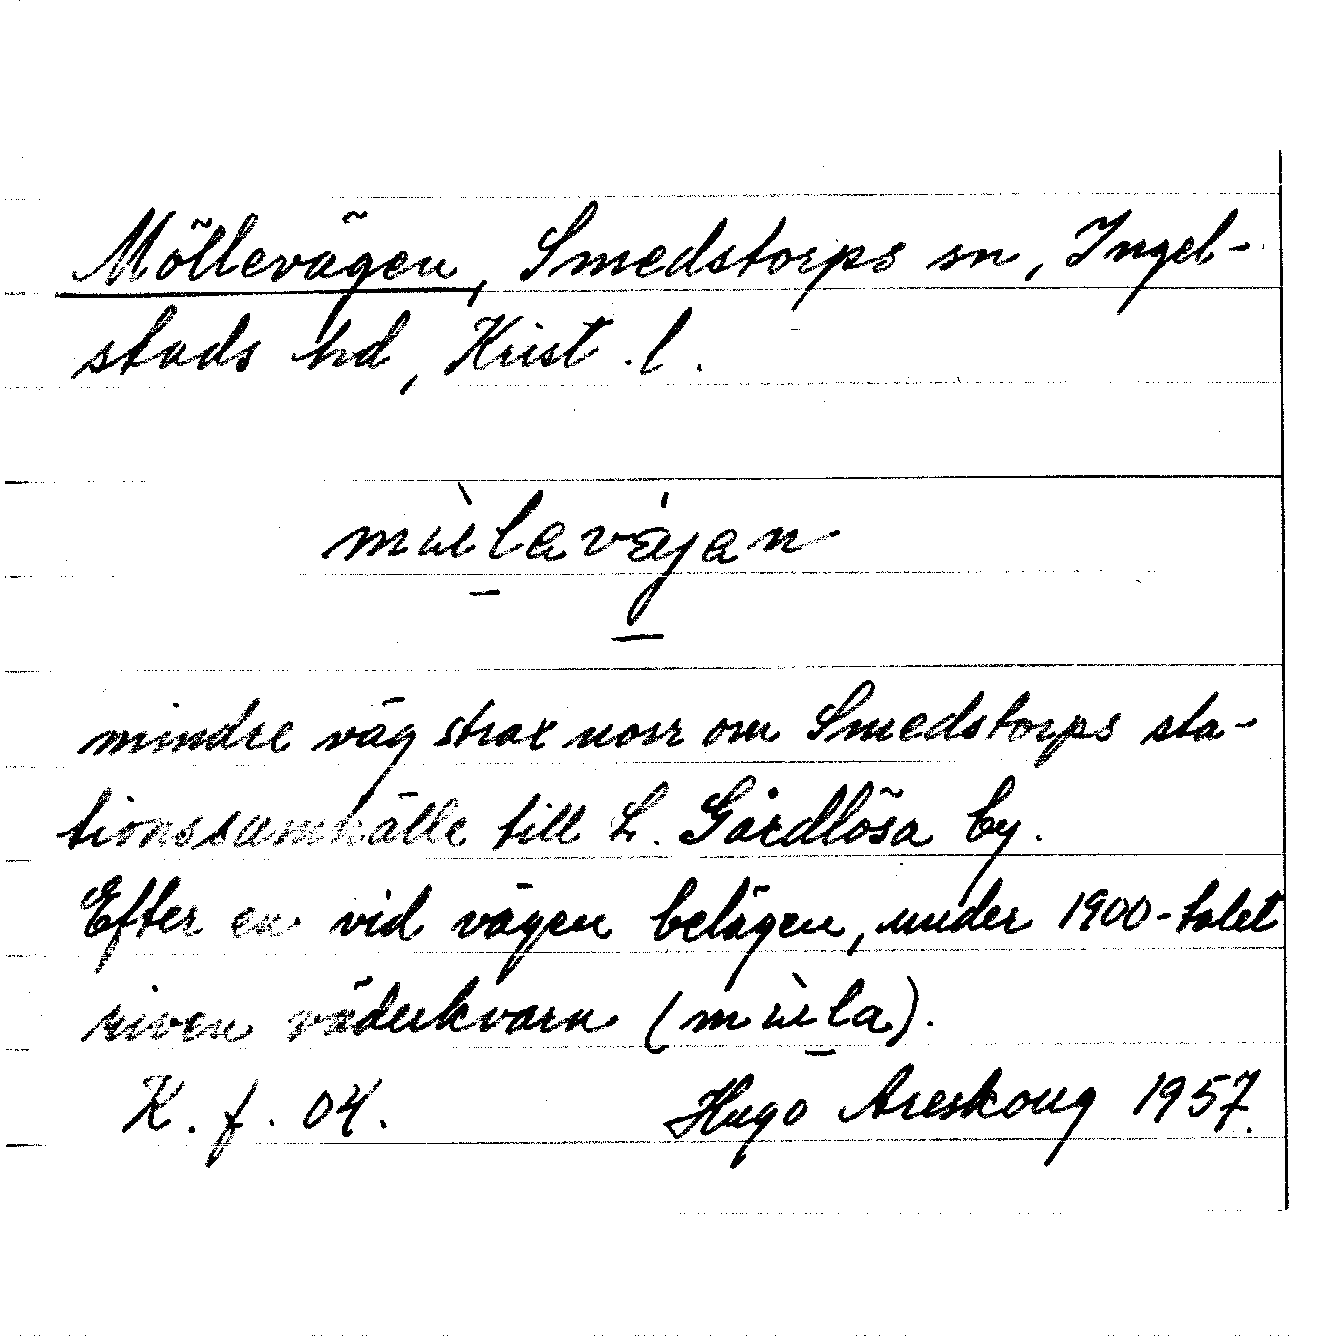 Möllevägen, Smedstorps sn, Ingel-
stads hd, Krist. l.
mindre väg strax norr om Smedstorps sta-
tionssamhälle till L. Gårdlösa by.
Efter en vid vägen belägen, under 1900-talet
riven väderkvarn
K. f. 04. Hugo Areskoug 1957.